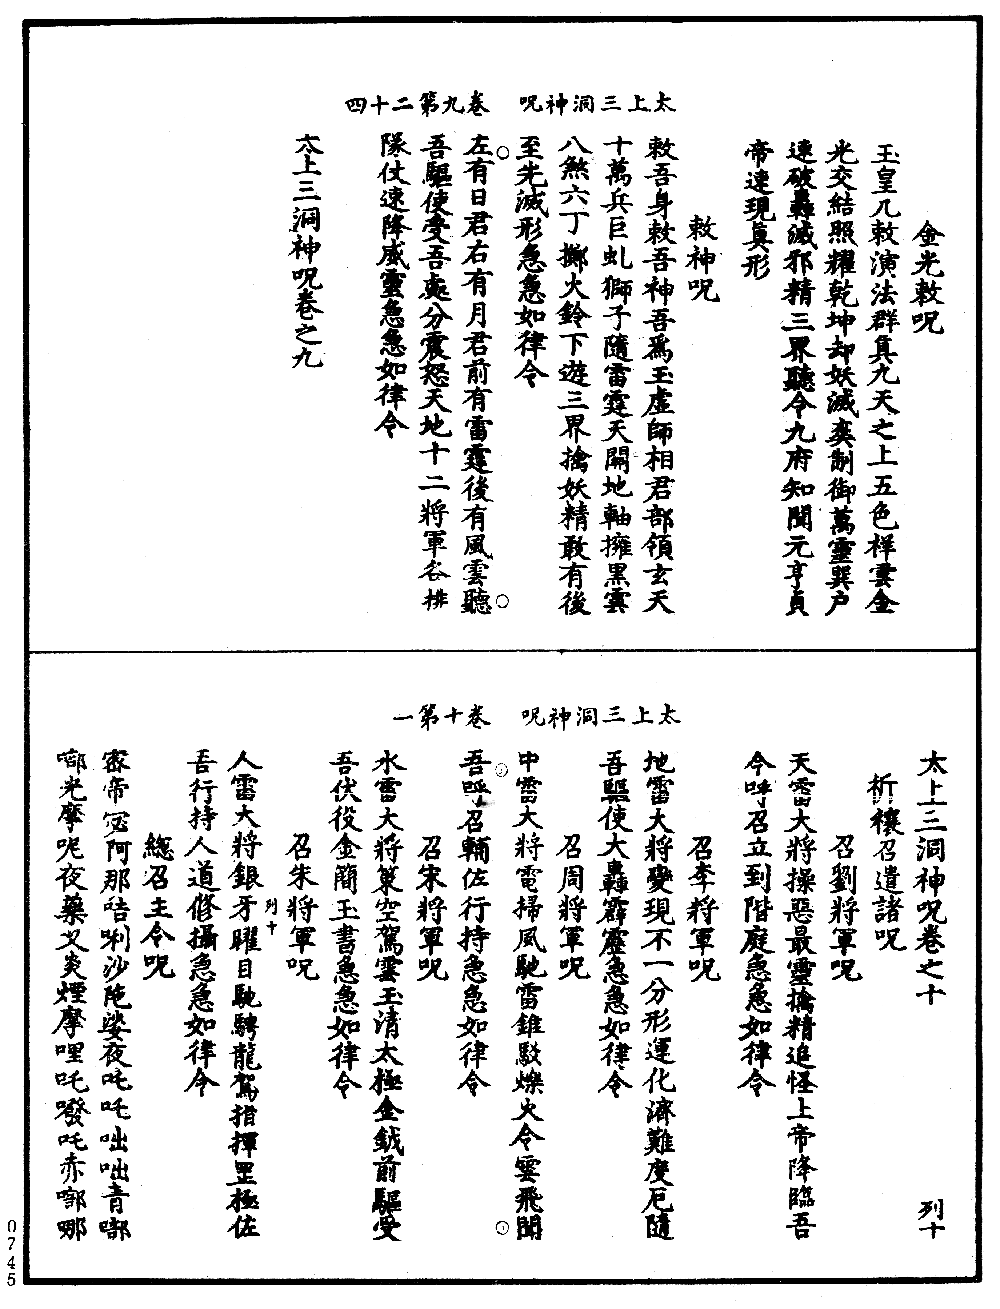 金光敕呪
玉皇几敕演法群真九天之上五色祥雲金
光交結照耀乾坤却妖滅衰制御萬靈巽户
速破轟滅邪精三界聽令九府知聞元亨貞
帝速現真形
敕神呪
敕吾身敕吾神吾爲玉虛師相君部領玄天
十萬兵巨虬獅子隨雷霆天關地軸擁黑雲
八煞六丁擲火鈴下遊三界擒妖精敢有後
至先滅形急急如律令
太上三洞神呪　卷九第二十四
左有日君右有月君前有雷霆後有風雲聽
吾驅使受吾處分震怒天地十二將軍各排
隊仗速降威靈急急如律令
太上三洞神呪卷之九
太上三洞神呪卷之十　列十
祈禳召遣諸呪
召劉將軍呪
天雷大將操惡最靈擒精追怪上帝降臨吾
今呼召立到階庭急急如律令
召李將軍呪
地雷大將變現不一分形運化濟難度厄隨
吾驅使大轟霹靂急急如律令
召周將軍呪
中雷大將電掃風馳雷錐駁爍火令雲飛聞
太上三洞神呪　卷十第一
吾呼召輔佐行持急急如律令
召宋將軍呪
水雷大將策空駕雲玉清太極金鉞前驅受
吾伏役金簡玉書急急如律令
召朱將軍呪
列十
人雷大將銀牙曜目馳騁龍駕指揮罡極佐
吾行持人道修攝急急如律令
總召主令呪
唵帝阿那咭唎沙陁娑夜吒吒咄咄青啷
啷光摩呢夜藥叉炎煙摩哩吒癈吒赤啷哪
0745